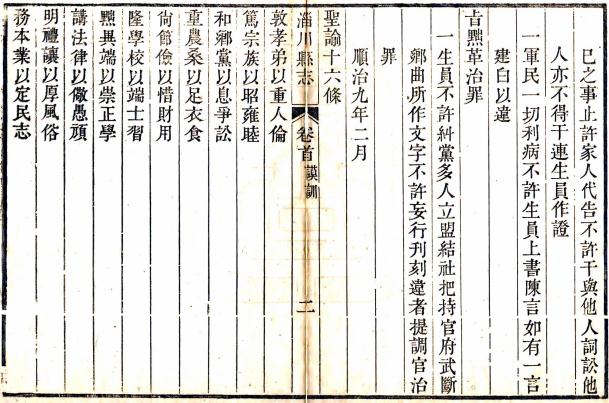 己之事止許家人代告不許干與他人詞訟他
人亦不得干連生員作證
一軍民一切利病不許生員上書陳言如有一言
建白以違
旨黜革治罪
一生員不許糾黨多人立盟結社把持官府武斷
鄉曲所作文字不許妄行刊刻違者提調官治
罪
順治九年二月
聖諭十六條
淄川縣志 卷首 謨訓 二
敦孝弟以重人倫
篤宗族以昭雍睦
和鄉黨以息爭訟
重農桑以足衣食
尚節儉以惜財用
隆學校以端士習
黜異端以崇正學
講法律以儆愚頑
明禮讓以厚風俗
務本業以定民志